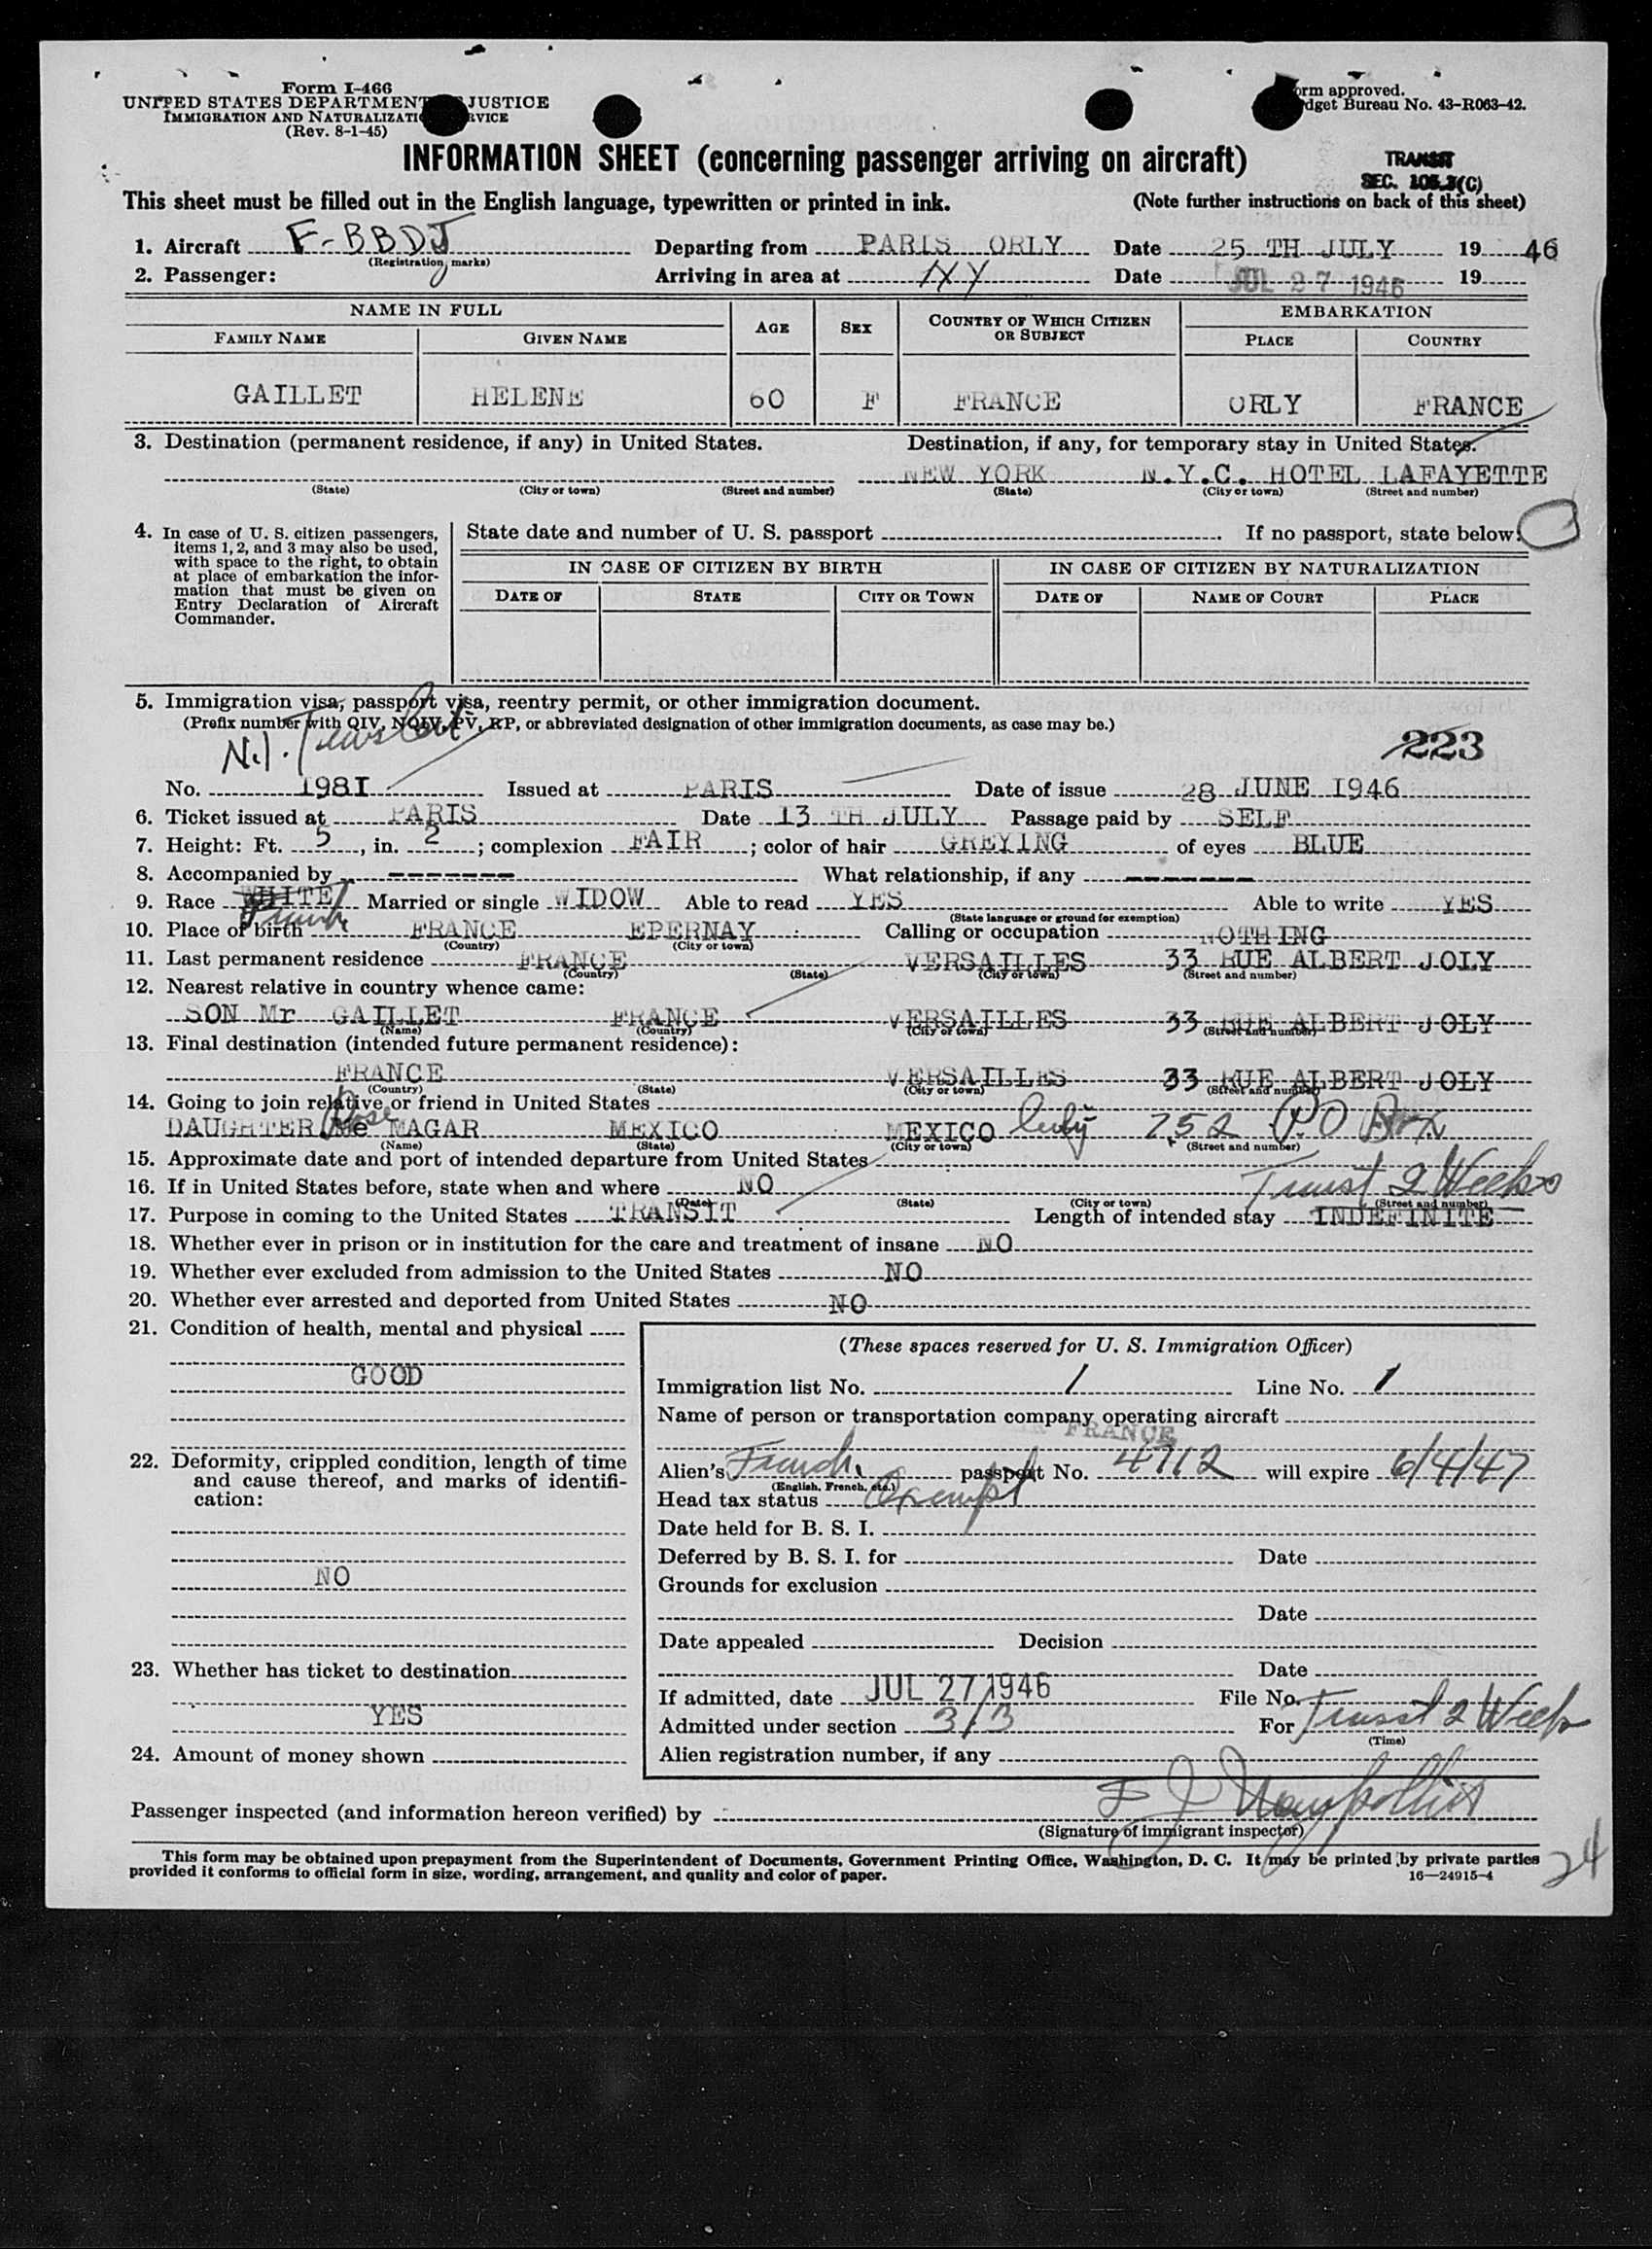 Form I-466
UNITED STATES DEPARTMENT JUSTICE
IMMIGRATION AND NATURALIZATI RVICE
(Rev. 8-1-45)
orm approved.
dget Bureau No. 43-R063-42.
INFORMATION SHEET (concerning passenger arriving on aircraft)
TRANSIT
SEC. 105.3(C)
This sheet must be filled out in the English language, typewritten or printed in ink. (Note further instructions on back of this sheet)
1. Aircraft F-BBDJ Departing from PARIS ORLY Date 25 TH JULY 19 46
(Registration marks)
2. Passenger: Arriving in area at Date JUL 27 1946 19
NAME IN FULL AGE SEX COUNTRY OF WHICH CITIZEN OR SUBJECT EMBARKATION
FAMILY NAME GIVEN NAME PLACE COUNTRY
GAILLET HELENE 60 F FRANCE ORLY FRANCE
3. Destination (permanent residence, if any) in United States. Destination, if any, for temporary stay in United States.
NEW YORK N.Y.C. HOTEL LAFAYETTE
(State) (City or town) (Street and number) (State) (City or town) (Street and number)
4. In case of U. S. citizen passengers, items 1, 2, and 3 may also be used, with space to the right, to obtain at place of embarkation the information that must be given on Entry Declaration of Aircraft Commander.
State date and number of U. S. passport . If no passport, state below:
IN CASE OF CITIZEN BY BIRTH IN CASE OF CITIZEN BY NATURALIZATION
DATE OF STATE CITY OR TOWN DATE OF NAME OF COURT PLACE
5. Immigration visa, passport visa, reentry permit, or other immigration document.
(Prefix number with QIV, NQIV, PV, RP, or abbreviated designation of other immigration documents, as case may be.)
N.I. 223
No. 1981 Issued at PARIS Date of issue 28 JUNE 1946
6. Ticket issued at PARIS Date 13 TH JULY Passage paid by SELF
7. Height: Ft. 5, in. 2; complexion FAIR; color of hair GREYING of eyes BLUE
8. Accompanied by ------- What relationship, if any -------
9. Race WHITE French Married or single WIDOW Able to read YES Able to write YES
(State language or ground for exemption)
10. Place of birth FRANCE EPERNAY Calling or occupation NOTHING
(Country) (City or town)
11. Last permanent residence FRANCE VERSAILLES 33 RUE ALBERT JOLY
(Country) (State) (City or town) (Street and number)
12. Nearest relative in country whence came:
SON Mr GAILLET FRANCE VERSAILLES 33 RUE ALBERT JOLY
(Name) (Country) (City or town) (Street and number)
13. Final destination (intended future permanent residence):
FRANCE VERSAILLES 33 RUE ALBERT JOLY
(Country) (State) (City or town) (Street and number)
14. Going to join relative or friend in United States
DAUGHTER Me Rose MAGAR MEXICO MEXICO City 752 P.O Box
(Name) (State) (City or town) (Street and number)
15. Approximate date and port of intended departure from United States
16. If in United States before, state when and where NO Transit 2 Weeks
(Date) (State) (City or town) (Street and number)
17. Purpose in coming to the United States TRANSIT Length of intended stay INDEFINITE
18. Whether ever in prison or in institution for the care and treatment of insane NO
19. Whether ever excluded from admission to the United States NO
20. Whether ever arrested and deported from United States NO
21. Condition of health, mental and physical
GOOD
22. Deformity, crippled condition, length of time and cause thereof, and marks of identification:
NO
23. Whether has ticket to destination
YES
24. Amount of money shown
(These spaces reserved for U. S. Immigration Officer)
Immigration list No. 1 Line No. 1
Name of person or transportation company operating aircraft
FRANCE
Alien's French passport No. 4712 will expire 6/4/47
(English, French, etc.)
Head tax status Exempt
Date held for B. S. I.
Deferred by B. S. I. for Date
Grounds for exclusion
Date
Date appealed Decision
Date
If admitted, date JUL 27 1946 File No.
Admitted under section 3/3 For Transit 2 Weeks
(Time)
Alien registration number, if any
Passenger inspected (and information hereon verified) by
(Signature of immigrant inspector)
This form may be obtained upon prepayment from the Superintendent of Documents, Government Printing Office, Washington, D. C. It may be printed by private parties
provided it conforms to official form in size, wording, arrangement, and quality and color of paper. 16—24915-4
24